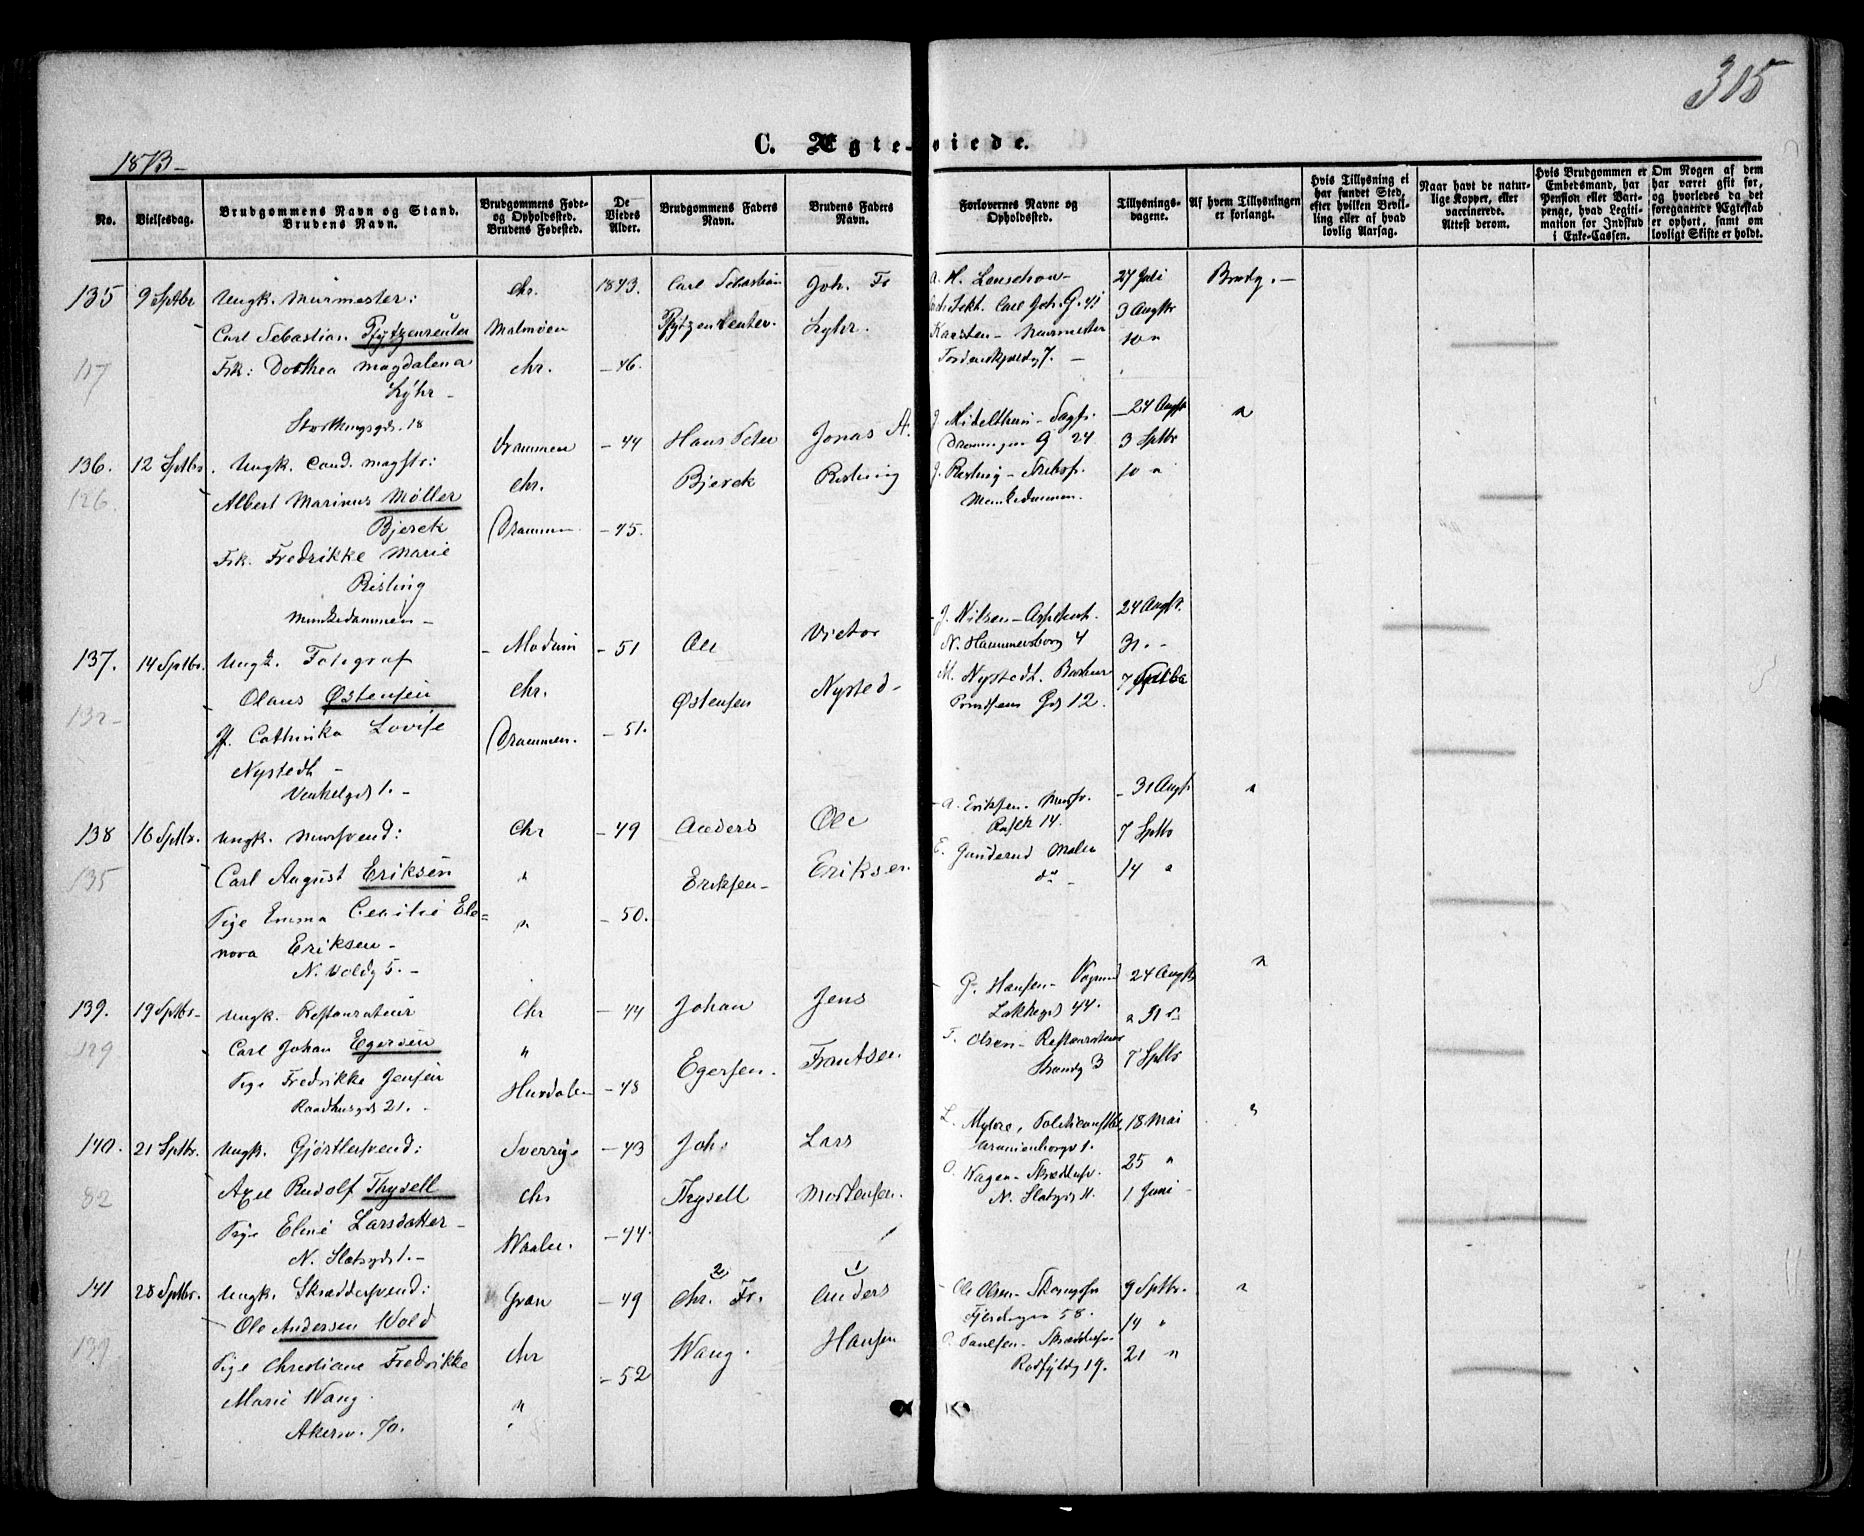 315
C. Ægte-viede.
1873
No.
Vielsesdag.
Brudgommens Navn og Stand.
Brudens Navn.
Brudgommens Føde-
og Opholdssted.
Brudens Fødested.
De
Viedes
Alder.
Brudgommens Faders
Navn.
Brudens Faders
Navn.
Forlovernes Navne og
Opholdssted.
Tillysnings-
dagene.
Af hvem Tillysningen
er forlangt.
Hvis Tillysning ei
har fundet Sted,
efter hvilken Bevil-
ling eller af hvad
lovlig Aarsag.
Naar havt de natur-
lige Kopper, eller
vaccinerede.
Attest derom.
Hvis Brudgommen er
Embedsmand, har
Pension eller Vart-
penge, hvad Legiti-
mation for Indskud
i Enke-Cassen.
Om Nogen af dem
har været gift før,
og hvorledes da det
foregaaende Ægteskab
er ophørt, samt om
lovligt Skifte er holdt.
135 9 Sptbr Ungk. Murmester: Chr. 1843. Carl Sebastian Joh. Fr 27 Juli Brudg.
Carl Sebastian Pfytzenreuter Malmøen Pfytzenreuter Lyhr. 3 Augtr
117 Frk: Dorthea Magdalena chr. 46. Karsten Murmester 10 "
Lyhr
Storthingsgd. 18
136. 12 Sptbr. Ungk. Cand. magstr: Drammen 44 Hans Peter Jonas A. 24 Augtr "
126 Albert Marinus Møller chr. Bjerck Risting Drammen G 24 3 Sptbr
Bjerck Drammen 45. J. Risting 10 "
Frk. Fredrikke Marie Munkedammen.
Risting
Munkedammen
137. 14 Sptbr. Ungk. Fotograf Modum 51 Ole Victor J. Nilsen 24 Augtr.
Olaus Østensen chr. Østensen Nysted N. Hammersborg 4 31.
132 Jf. Cathinka Lovise Drammen. 51. M. Nystedt. 7 Sptbr
Nystedt Gd 12.
138 16 Sptbr. Ungk. Mursvend: Chr 49 Anders Ole A. Eriksen 31 Augtr "
135 Carl August Eriksen " Eriksen Eriksen 14. 7 Sptbr
Pige Emma Cecilie Ele= " 50. E. Gunderud Maler 14 "
nora Eriksen
N. Voldg 5.
139. 19 Sptbr Ungk. Restaurateur Chr 44 Johan Jens Hansen 24 Augtr "
129 Carl Johan Egersen " Egersen. Frantsen Lakkegd 44. " 31
Pige Fredrikke Jensen Hurdalen 48 T. Olsen Restaurateur 7 Sptbr
Raadhusgd 21. Strandg 3
140. 21 Sptbr. Ungk. Gjørtlersvend: Sverrige 43 Joh. Lars L. Myhre, 18 Mai "
82 Axel Rudolf Thysell chr Thysell Mortensen. 25 "
Pige Eline Larsdatter Waaler. 44. N. Slotsgd 1 Juni
N. Slotsgd 1.
141 28 Sptbr. Ungk. Skræddersvend: Gran 49 2 Chr. Fr. 1 Anders Ole Olsen 9 Sptbr. "
Ole Andersen Vold chr Wang. Hansen Fjerdingen 58. 14 "
139 Pige Christiane Fredrikke " 52 Paulsen 21 "
Marie Wang. 19.
Akersv. 70.